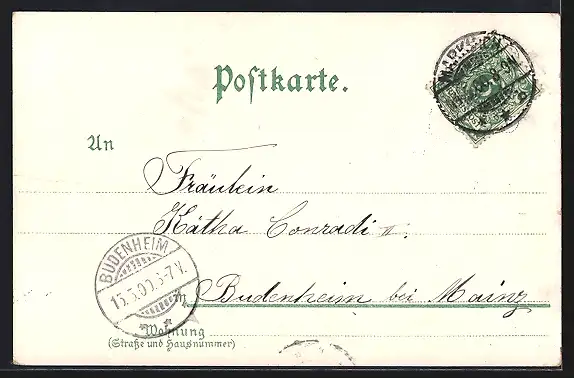 Postkarte.
An
Fräulein
Kätha Conradi II.
BUDENHEIM
13.5.00.6-7V.
in Budenheim bei Mainz
Wohnung
(Straße und Hausnummer)